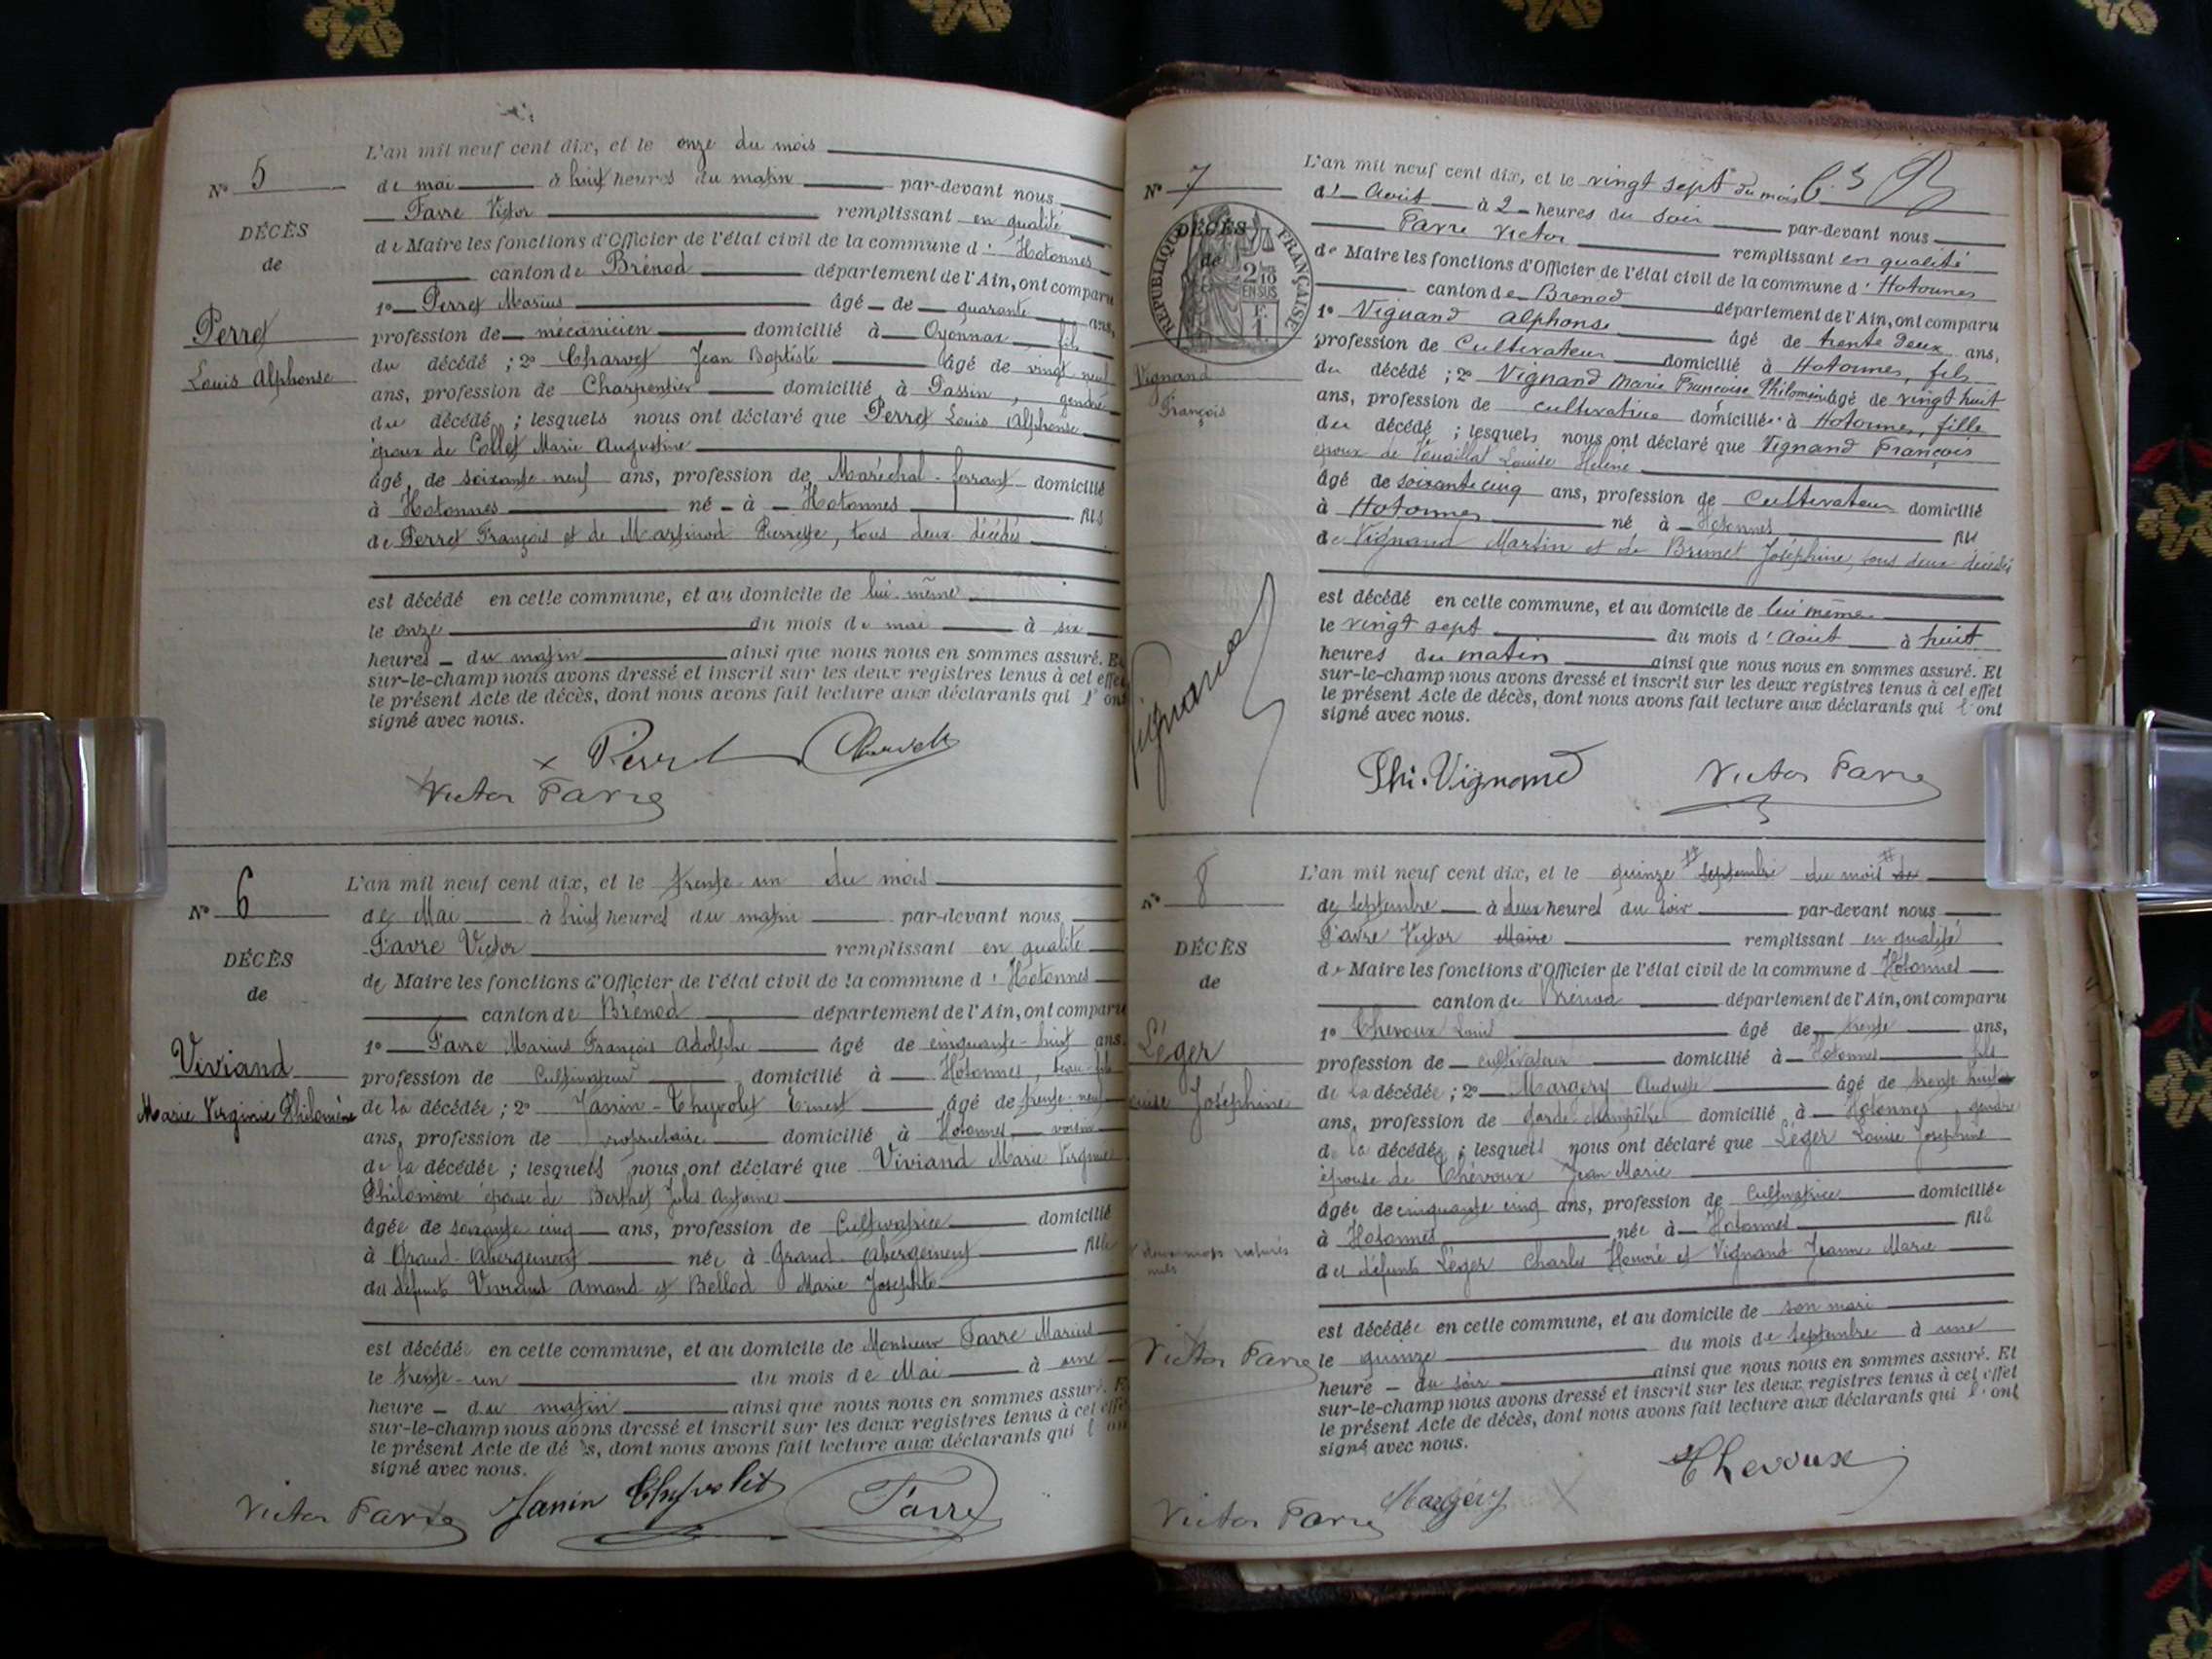 L'an mil neuf cent dix, et le onze du mois
N° 5
de mai à huit heures du matin par-devant nous
Favre Victor remplissant en qualité
DÉCÈS
de Maire les fonctions d'Officier de l'état civil de la commune d' Hotonnes
de
canton de Brénod département de l'Ain, ont comparu
1° Perret Marius âgé de quarante ans,
Perret
profession de mécanicien domicilié à Oyonnax fils
du décédé ; 2° Charvet Jean Baptiste âgé de vingt neuf
Louis Alphonse
ans, profession de Charpentier domicilié à Passin, gendre
du décédé ; lesquels nous ont déclaré que Perret Louis Alphonse
époux de Collet Marie Augustine
âgé de soixante neuf ans, profession de Maréchal-ferrant domicilié
à Hotonnes né à Hotonnes fils
de Perret François et de Martinod Pierrette, tous deux décédés
est décédé en cette commune, et au domicile de lui-même
le onze du mois de mai à six
heures du matin ainsi que nous nous en sommes assuré. Et
sur-le-champ nous avons dressé et inscrit sur les deux registres tenus à cet effet
le présent Acte de décès, dont nous avons fait lecture aux déclarants qui l'ont
signé avec nous.
Perret Charvet
Victor Favre
L'an mil neuf cent dix, et le trente-un du mois
N° 6
de Mai à huit heures du matin par-devant nous
Favre Victor remplissant en qualité
DÉCÈS
de Maire les fonctions d'Officier de l'état civil de la commune d' Hotonnes
de
canton de Brénod département de l'Ain, ont comparu
1° Favre Marius François Adolphe âgé de cinquante-huit ans
Viviand
profession de Cultivateur domicilié à Hotonnes, beau-fils
Marie Virginie Philomène
de la décédée ; 2° Janin-Thyvolet Ernest âgé de trente-neuf
ans, profession de propriétaire domicilié à Hotonnes voisin
de la décédée ; lesquels nous ont déclaré que Viviand Marie Virginie
Philomène épouse de Berthet Jules Antoine
âgée de soixante cinq ans, profession de Cultivatrice domicilié
à Grand-Abergement née à Grand-Abergement fille
des défunts Viviand Amand et Bellod Marie Josephte
est décédée en cette commune, et au domicile de Monsieur Favre Marius
le trente-un du mois de Mai à une
heure du matin ainsi que nous nous en sommes assuré. Et
sur-le-champ nous avons dressé et inscrit sur les deux registres tenus à cet effet
le présent Acte de décès, dont nous avons fait lecture aux déclarants qui l'ont
signé avec nous.
Victor Favre Janin Thyvolet Favre
L'an mil neuf cent dix, et le vingt sept du mois
N° 7
d' Août à 2 heures du soir par-devant nous
Favre Victor remplissant en qualité
DÉCÈS
de
RÉPUBLIQUE FRANÇAISE
2/10 EN SUS
F. 1
de Maire les fonctions d'Officier de l'état civil de la commune d' Hotonnes
canton de Brenod département de l'Ain, ont comparu
1° Vignand Alphonse âgé de trente deux ans,
profession de Cultivateur domicilié à Hotonnes, fils
Vignand
du décédé ; 2° Vignand Marie Françoise Philomène âgé de vingt huit
François
ans, profession de cultivatrice domiciliée à Hotonnes, fille
du décédé ; lesquels nous ont déclaré que Vignand François
époux de Louise Hélène
âgé de soixante cinq ans, profession de Cultivateur domicilié
à Hotonnes né à Hotonnes fils
de Vignand Martin et de Brunet Joséphine, tous deux décédés
est décédé en cette commune, et au domicile de lui même
le vingt sept du mois d'août à huit
heures du matin ainsi que nous nous en sommes assuré. Et
sur-le-champ nous avons dressé et inscrit sur les deux registres tenus à cet effet
le présent Acte de décès, dont nous avons fait lecture aux déclarants qui l'ont
signé avec nous.
Vignand
Phi. Vignand Victor Favre
L'an mil neuf cent dix, et le quinze septembre du mois de
N° 8
de septembre à deux heures du soir par-devant nous
Favre Victor Maire remplissant en qualité
DÉCÈS
de Maire les fonctions d'Officier de l'état civil de la commune d Hotonnes
de
canton de Brénod département de l'Ain, ont comparu
1° Chevoux Louis âgé de trente ans,
Léger
profession de cultivateur domicilié à Hotonnes fils
de la décédée ; 2° Margery Auguste âgé de trente huit
Louise Joséphine
ans, profession de garde champêtre domicilié à Hotonnes, gendre
de la décédée ; lesquels nous ont déclaré que Léger Louise Joséphine
épouse de Chévoux Jean Marie
âgée de cinquante cinq ans, profession de Cultivatrice domiciliée
à Hotonnes née à Hotonnes fille
des défunts Léger Charles Honoré et Vignand Jeanne Marie
deux mots rayés
nuls
est décédée en cette commune, et au domicile de son mari
Victor Favre
le quinze du mois de septembre à une
heure du soir ainsi que nous nous en sommes assuré. Et
sur-le-champ nous avons dressé et inscrit sur les deux registres tenus à cet effet
le présent Acte de décès, dont nous avons fait lecture aux déclarants qui l'ont
signé avec nous.
Chevoux
Victor Favre Margery